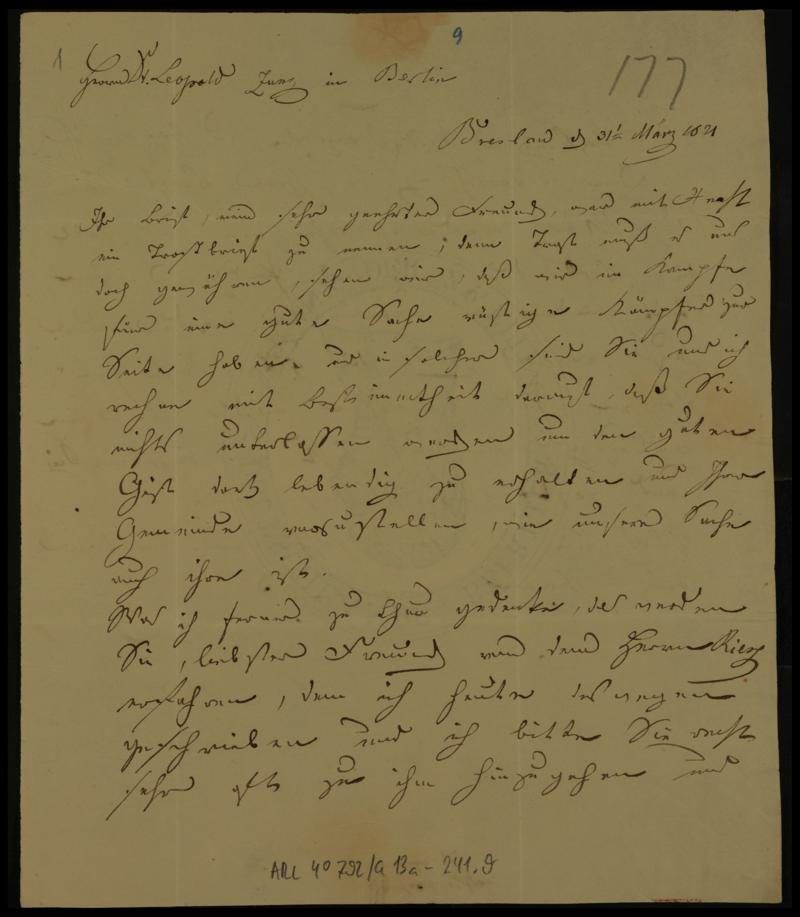 9
1
177
Herrn Dr. Leopold Zunz in Berlin
Breslau d 31t März 1821
Ihr Brief, mein sehr geehrter Freund, war mit Recht
ein Trostbrief zu nennen; denn Trost muß es uns
doch gewähren, sehen wir, daß wir im Kampfe
für eine gute Sache rüstige Kämpfer zur
Seite haben. in solcher sind Sie und ich
rechne mit Bestimmtheit darauf, daß Sie
nichts unterlassen werden um den guten
Geist dort lebendig zu erhalten und Ihrer
Gemeinde vorzustellen, wie unsere Sache
auch ihre ist.
Was ich ferner zu thun gedenke, das werden
Sie, liebster Freund von dem Herrn Riess
erfahren, dem ich heute deswegen
geschrieben und ich bitte Sie recht
sehr oft zu ihm hinzugehen und
ARC 4° 792/G 13a - 241.9